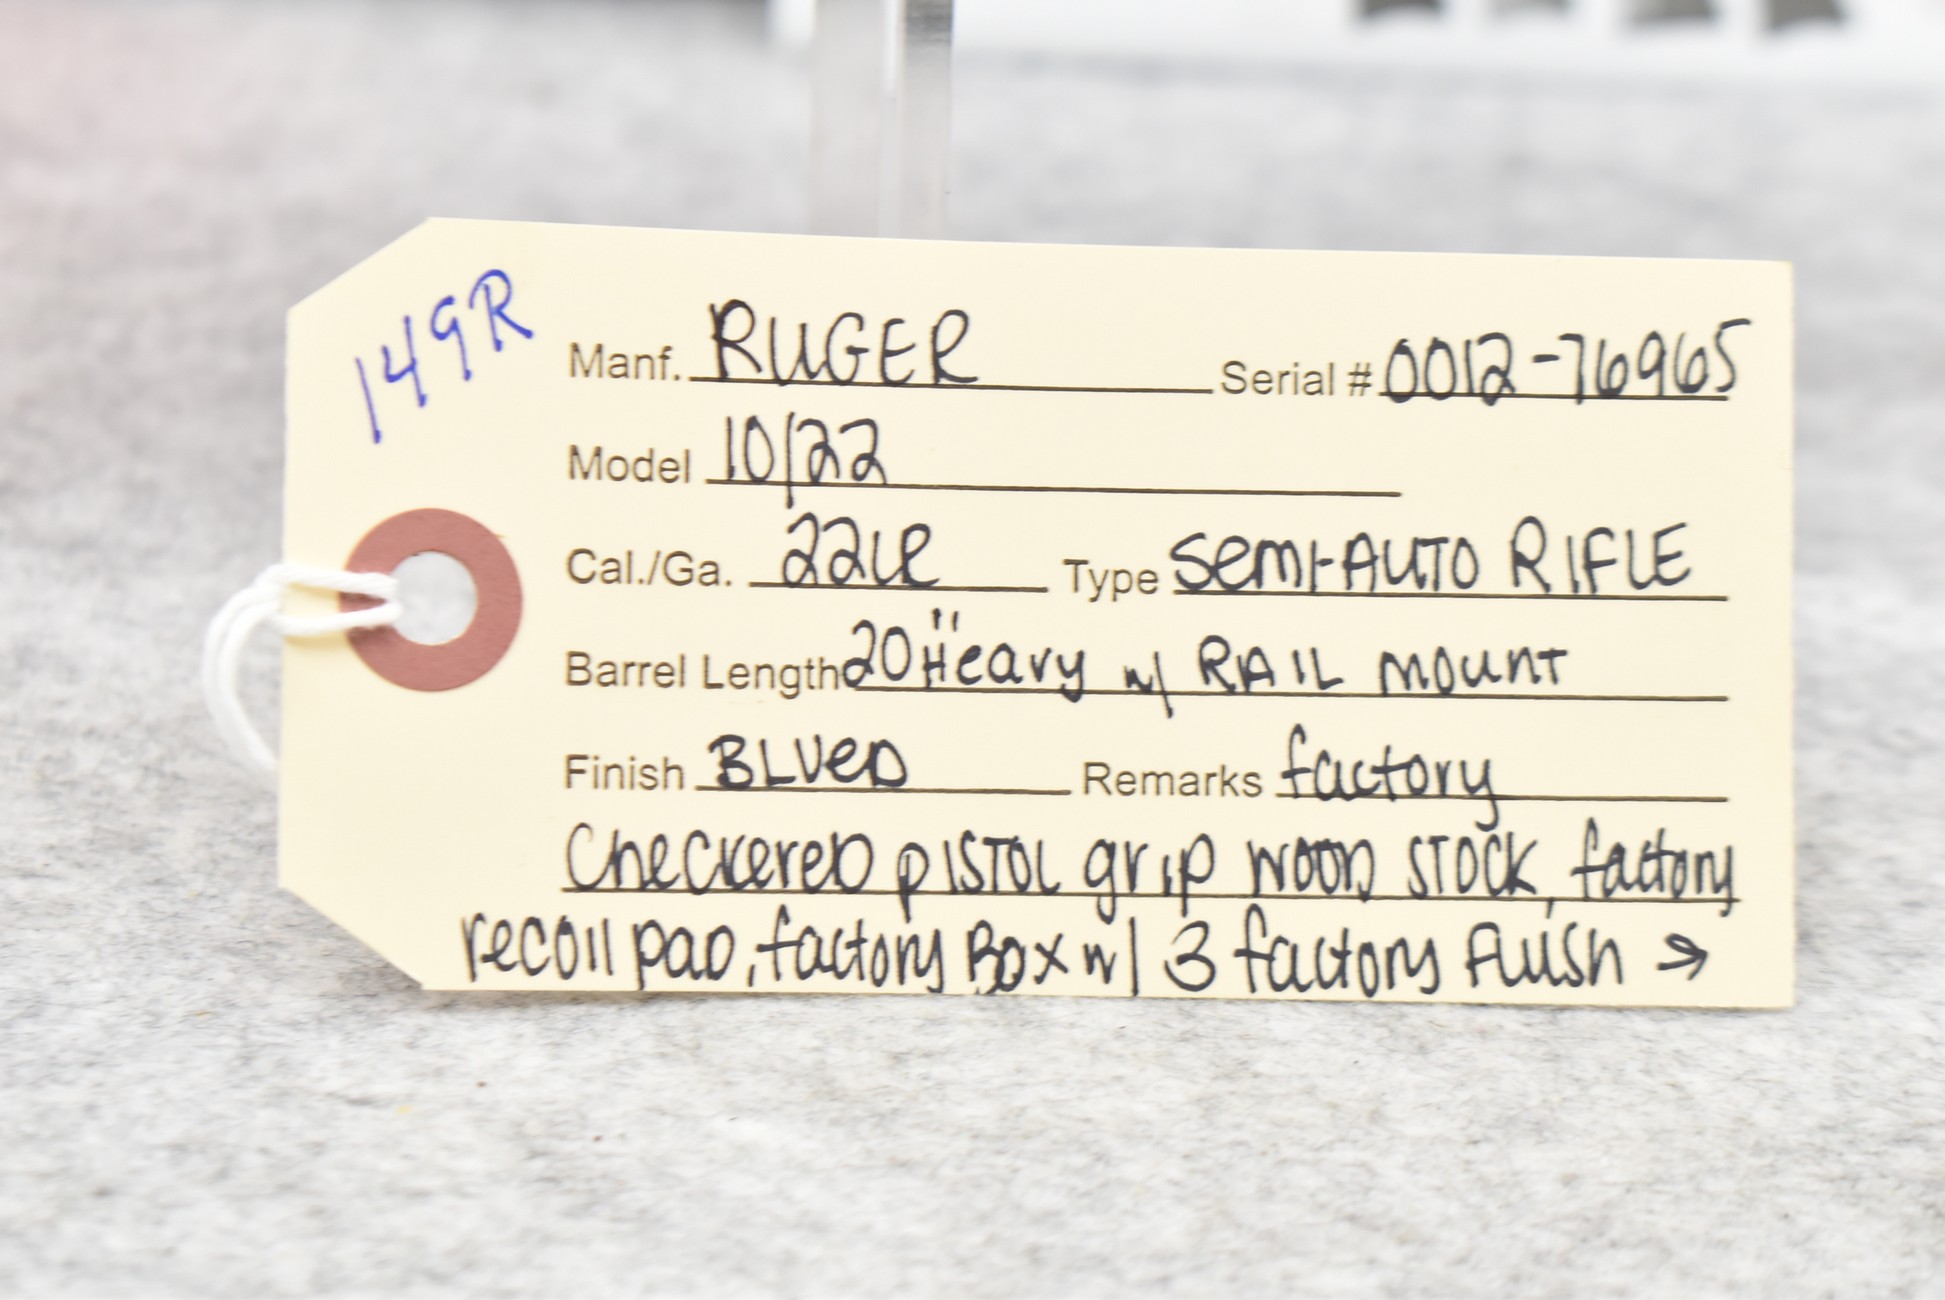 149R
Manf. RUGER Serial # 0012-76965
Model 10/22
Cal./Ga. 22LR Type Semi-AUTO RIFLE
Barrel Length 20" Heavy w/ RAIL mount
Finish BLUeD Remarks factory
CheckereD pISTOL grip wooD STOCK, factory
recoil paD, factory Box w/ 3 factory flush →